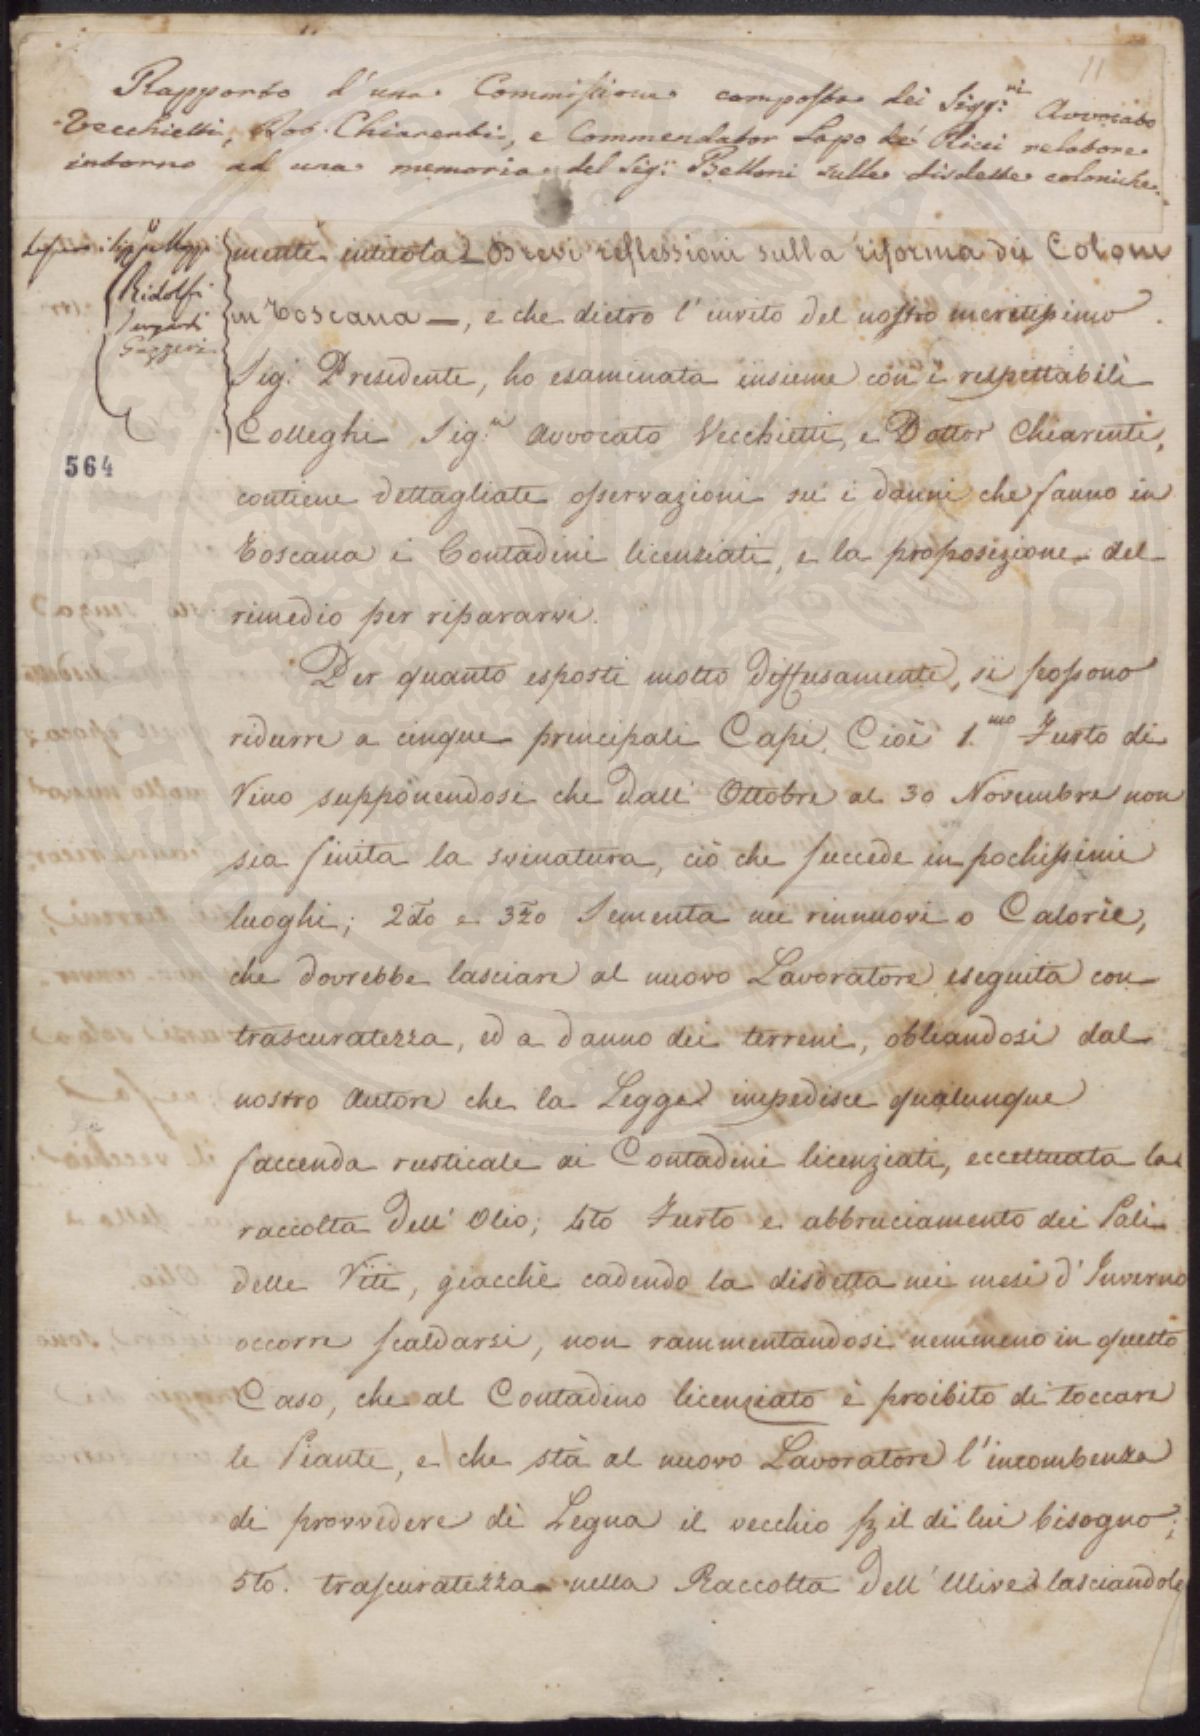 11
Rapporto d'una Commissione composta dei Sigg:ri Avvocato
Vecchietti, Dot. Chiarenti, e Commendator Lapo de' Ricci relatore
intorno ad una memoria del Sig: Bettoni sulle disdette coloniche.
mente intitola = Brevi reflessioni sulla riforma dei Coloni
Ridolfi
in Toscana —, e che dietro l'invito del nostro meritissimo
Sig: Presidente, ho esaminata insieme con i respettabili
Colleghi Sig.ri Avvocato Vecchietti, e Dottor Chiarenti,
564
contiene dettagliate osservazioni su' i danni che fanno in
Toscana i Contadini licenziati, e la proposizione del
rimedio per ripararvi.
Per quanto esposti molto diffusamente, si possono
ridurre a cinque principali Capi. Cioè 1.mo Furto di
Vino supponendosi che dall' Ottobre al 30 Novembre non
sia finita la svinatura, ciò che succede in pochissimi
luoghi; 2do e 3zo Sementa nei rinnuovi o Calorie,
che dovrebbe lasciare al nuovo Lavoratore eseguita con
trascuratezza, ed a danno dei terreni, obliandosi dal
nostro Autore che la Legge impedisce qualunque
faccenda rusticale ai Contadini licenziati, eccettuata la
raccolta dell' Olio; 4to Furto e abbruciamento dei Pali
delle Viti, giacchè cadendo la disdetta nei mesi d'Inverno
occorre scaldarsi, non rammentandosi nemmeno in questo
Caso, che al Contadino licenziato è proibito di toccare
le Piante, e che stà al nuovo Lavoratore l'incombenza
di provvedere di Legna il vecchio p il di lui bisogno;
5to. trascuratezza nella Raccolta dell' Ulive lasciandole